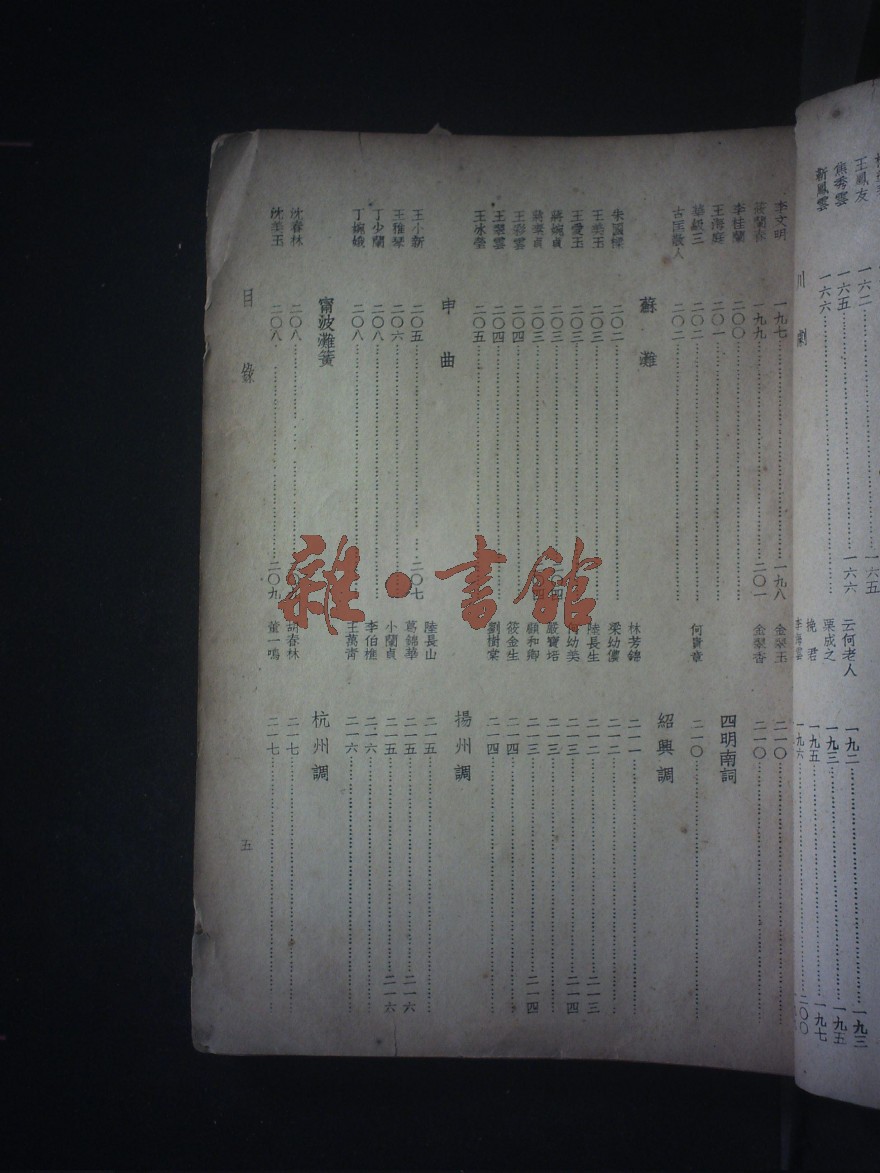 王鳳友
焦秀雲
新鳳雲
一六二
一六五
一六六
一六五
一六六
川劇
云何老人
栗成之
挽君
李海雲
一九二 一九三
一九三 一九五
一九五 一九七
一九六 二〇〇
李文明 一九七 一九八
筱蘭春 一九九 二〇一
李桂蘭 二〇〇
王海庭 二〇一
華級三 二〇二
古匡散人 二〇二
蘇灘
朱國樑 二〇二
王美玉 二〇三
王愛玉 二〇三
蔣婉貞 二〇三
二〇三
王彩雲 二〇四
王翠雲 二〇四
王冰瑩 二〇五
申曲
王小新 二〇五 二〇七
王雅琴 二〇六
丁少蘭 二〇八
丁婉娥 二〇八
甯波灘簧
沈春林 二〇八
沈美玉 二〇八 二〇九
金翠玉 二一〇
金翠香 二一〇
四明南詞
何貴章 二一〇
紹興調
林芳錦 二一一
梁幼儂 二一二
陸長生 二一二 二一三
幼美 二一三 二一四
嚴寶培 二一二
顧和卿 二一三 二一四
筱金生 二一四
劉樹棠 二一四
揚州調
陸長山 二一五
葛錦華 二一五 二一六
小蘭貞 二一五 二一六
李伯樵 二一六
王萬青 二一六
杭州調
胡春林 二一七
董一鳴 二一七
目錄
五
雜·書館